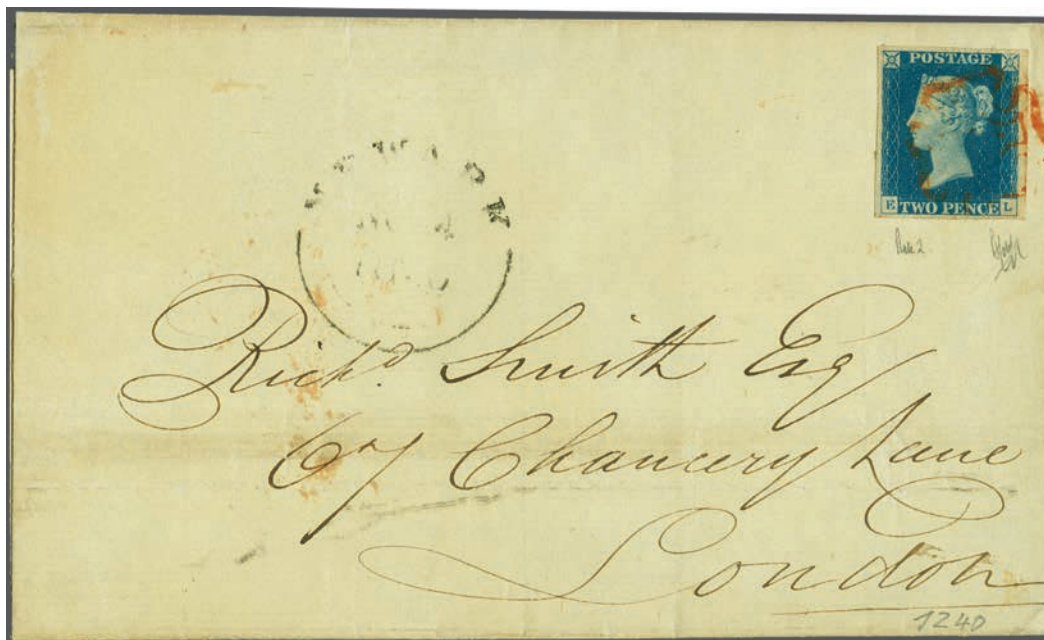 POSTAGE
E TWO PENCE L
NEWARK
Plate 2
Rich.d Smith Esq
67 Chancery Lane
London
1240